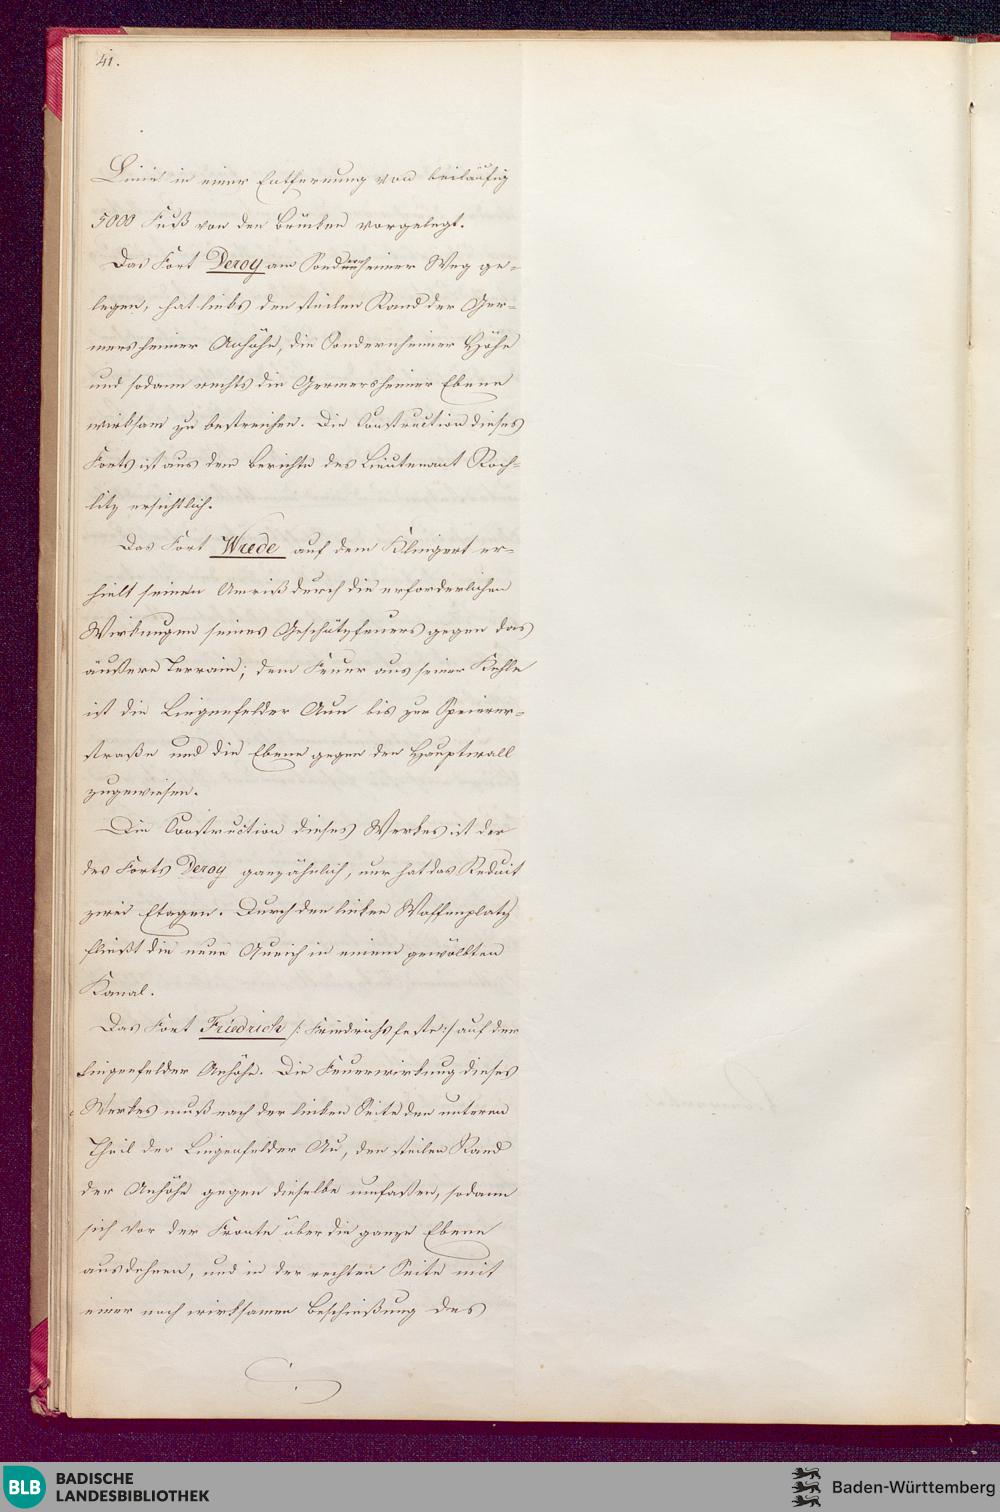 41.
Linie in einer Entfernung von beiläufig
5000 Fuß von den Brücken vorgelegt.
Das Fort Deroy am Sondernheimer Weg ge-
legen, hat links den steilen Rand der Ger-
mersheimer Anhöhe, die Sondernheimer Höhe
und sodann rechts die Germersheimer Ebene
wirksam zu bestreichen. Die Construction dieses
Forts ist aus dem Berichte des Lieutenant Roch-
litz ersichtlich.
Das Fort Wrede auf dem Klingert er-
hielt seinen Umriß durch die erforderlichen
Wirkungen seines Geschützfeuers gegen das
äußere Terrain; dem Feuer aus seiner Kehle
ist die Lingenfelder Aue bis zur Speierer-
straße und die Ebene gegen den Hauptwall
zugewiesen.
Die Construction dieses Werkes ist der
des Forts Deroy ganz ähnlich, nur hat das Reduit
zwei Etagen. Durch den linken Waffenplatz
fließt die neue Queich in einem gewölbten
Kanal.
Das Fort Friedrich /: Friedrichsfeste :/ auf der
Lingenfelder Anhöhe. Die Feuerwirkung dieses
Werkes muß nach der linken Seite den unteren
Theil der Lingenfelder Au, den steilen Rand
der Anhöhe gegen dieselbe umfassen, sodann
sich vor der Fronte über die ganze Ebene
ausdehnen, und in der rechten Seite mit
einer noch wirksamen Beschießung des
BLB BADISCHE
LANDESBIBLIOTHEK
Baden-Württemberg